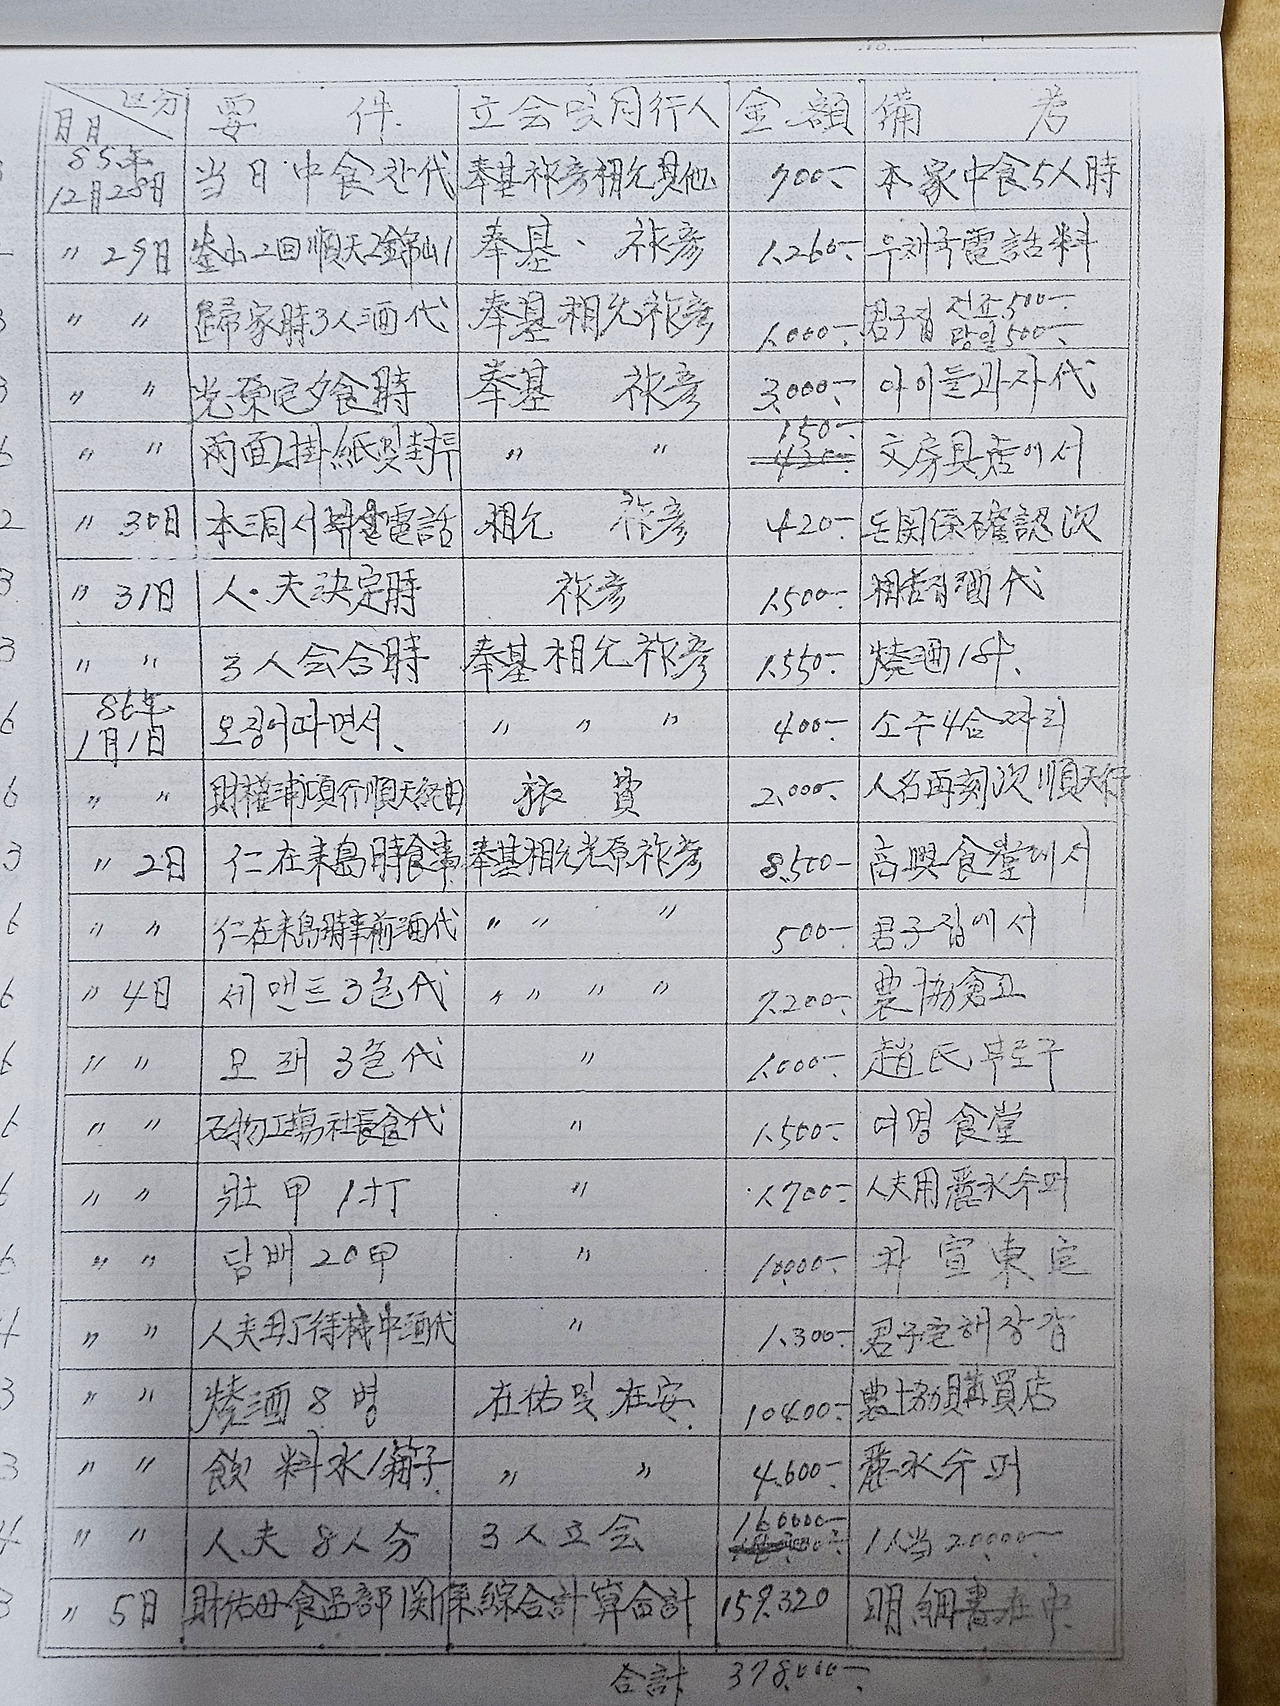 区分 月日 要件 立会및同行人 金額 備考
85年12月28日 当日中食 代 奉基祚彦相允其他 700- 本家中食5人時
〃 29日 釜山2回順天2錦山1 奉基、祚彦 1,260- 우체국電話料
〃 〃 歸家時3人酒代 奉基相允祚彦 1,000- 君子집 500- 당일500-
〃 〃 光原宅夕食時 奉基 祚彦 3,000- 아이들과자代
〃 〃 兩面掛紙및封투 〃 〃 150- 文房具店에서
〃 30日 本洞서奉基電話 相允 祚彦 420- 돈関係確認次
〃 31日 人・夫決定時 祚彦 1,500- 酒代
〃 〃 3人会合時 奉基相允祚彦 1,550- 燒酒1升、
86年1月1日 오징어따면서、 〃 〃 〃 400- 소주4合짜리
〃 〃 財權 行順天 旅費 2,000- 人名再刻次順天行
〃 2日 仁在来島時食事 奉基相允光原祚彦 8,500- 高興食堂에서
〃 〃 仁在来島時事前酒代 〃 〃 〃 500- 君子집에서
〃 4日 세멘트3包代 〃 〃 〃 〃 7,200- 農協倉고
〃 〃 모래3包代 〃 1,000- 趙氏부로구
〃 〃 石物工場社長食代 〃 1,500- 여명食堂
〃 〃 壯甲1打 〃 1,700- 人夫用麗水수퍼
〃 〃 담배20甲 〃 10,000- 宣東宅
〃 〃 人夫 待機中酒代 〃 1,300- 君子宅해장감
〃 〃 燒酒8병 在佑및在安 10400- 農協購買店
〃 〃 飮料水1箱子 〃 〃 4,600- 麗水수퍼
〃 〃 人夫8人分 3人立会 160000- 1人当20,000-
〃 5日 財佑母食品部関係綜合計算合計 159,320 明細書在中
合計 378,000-